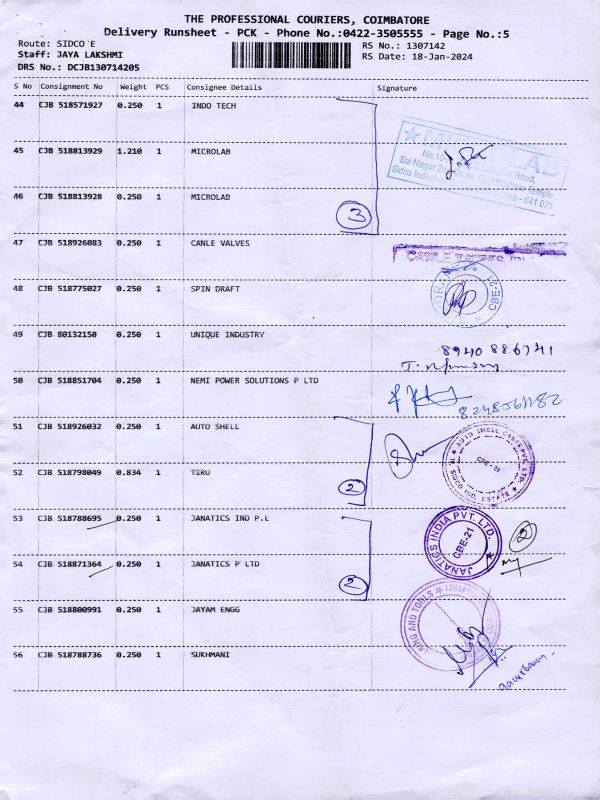 THE PROFESSIONAL COURIERS, COIMBATORE
Delivery Runsheet - PCK - Phone No.:0422-3505555 - Page No.:5
Route: SIDCO E
RS No.: 1307142
Staff: JAYA LAKSHMI
RS Date: 18-Jan-2024
DRS No.: DCJB130714205
S No Consignment No Weight PCS Consignee Details Signature
44 CJB 518571927 0.250 1 INDO TECH
45 CJB 518813929 1.210 1 MICROLAB
No.10-
Road,
Sai Nagar
Temple
Sidco Indus
- 641 021
46 CJB 518813928 0.250 1 MICROLAB
3
47 CJB 518926083 0.250 1 CANLE VALVES
CANLE
48 CJB 518775027 0.250 1 SPIN DRAFT
CBE-21
49 CJB 80132150 0.250 1 UNIQUE INDUSTRY
8940886741
50 CJB 518851704 0.250 1 NEMI POWER SOLUTIONS P LTD
51 CJB 518926032 0.250 1 AUTO SHELL
AUTO SHELL CASTS PVT. LTD.
CBE-21
SIDCO IND. ESTATE
52 CJB 518798049 0.834 1 VIRU
2
53 CJB 518788695 0.250 1 JANATICS IND P.L
JANATICS INDIA PVT. LTD.
CBE-21
2
54 CJB 518871364 0.250 1 JANATICS P LTD
2
55 CJB 518800991 0.250 1 JAYAM ENGG
RING AND TOOLS
641021
56 CJB 518788736 0.250 1 SUKHMANI